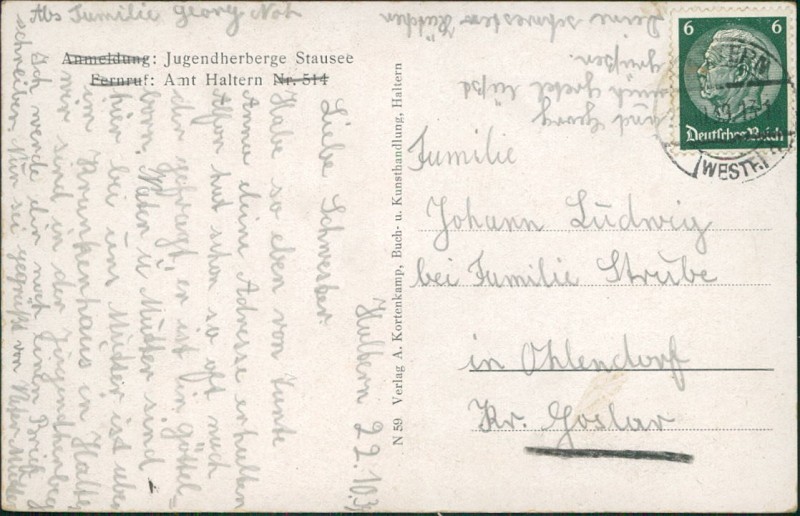 Abs Familie Georg
Anmeldung: Jugendherberge Stausee
Fernruf: Amt Haltern Nr. 514
Haltern 22.10.3
Liebe Schwester.
Habe so eben von Tante
Annie deine Adresse erhalten
Alfon hat schon so oft nach
dir gefragt, er ist in Göttel=
born, Vater u Mutter sind
hier bei uns Mutter ist eben
im Krankenhaus in Halter
wir sind in der Jugendherberg
Ich werde dir noch einen Brief
schreiben. Nun sei gegrüßt von Vater Mutter
und Georg
auch Gretel läßt
grüßen.
Deine Schwester
N 59 Verlag A. Kortenkamp, Buch- u. Kunsthandlung, Haltern
6 6
Deutsches Reich
(WESTF.)
Familie
Johann Ludwig
bei Familie Strube
in Ohlendorf
Kr. Goslar